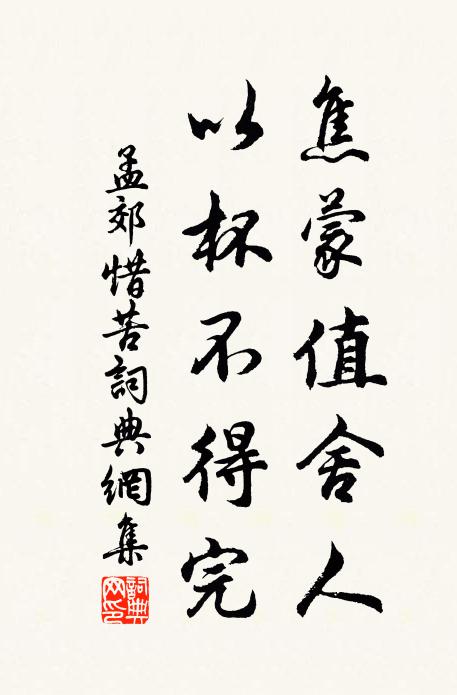 焦蒙值舍人
以杯不得完
孟郊惜苦詞典網集
詞典網印